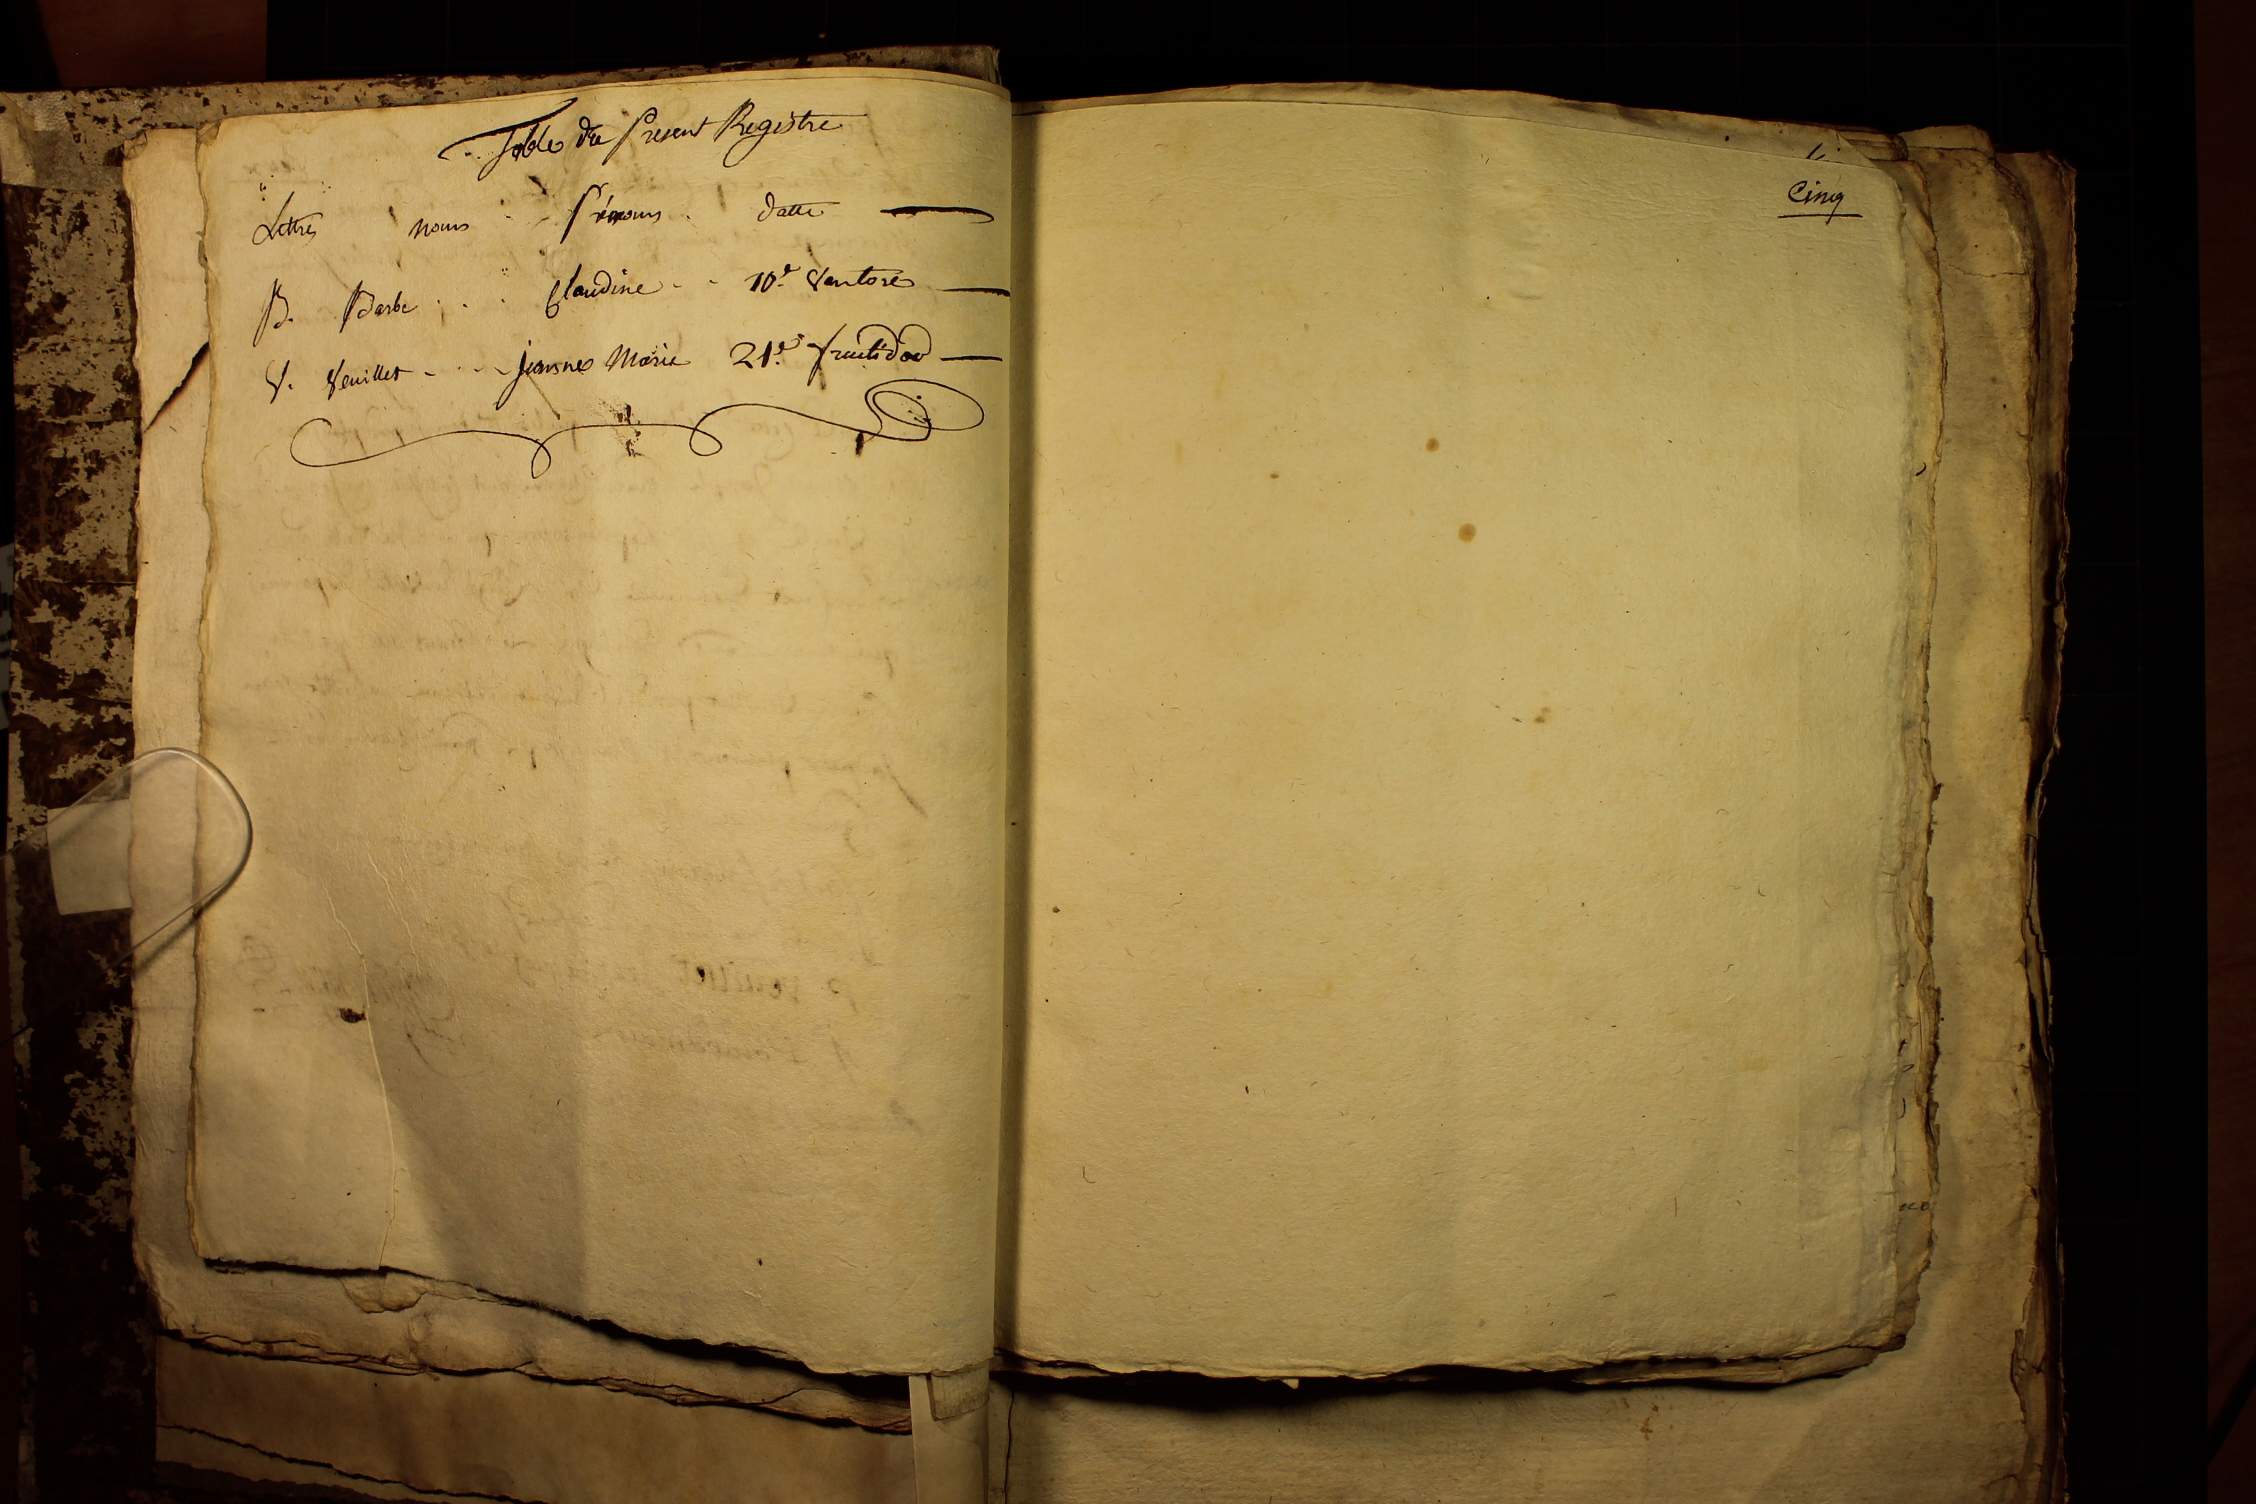 Table du Present Registre
Lettres noms Prénoms datte
B. Barbe . . . Claudine . . 10.e Ventose
V. Veuillet . . . jeanne Marie 21.e fructidor
Cinq